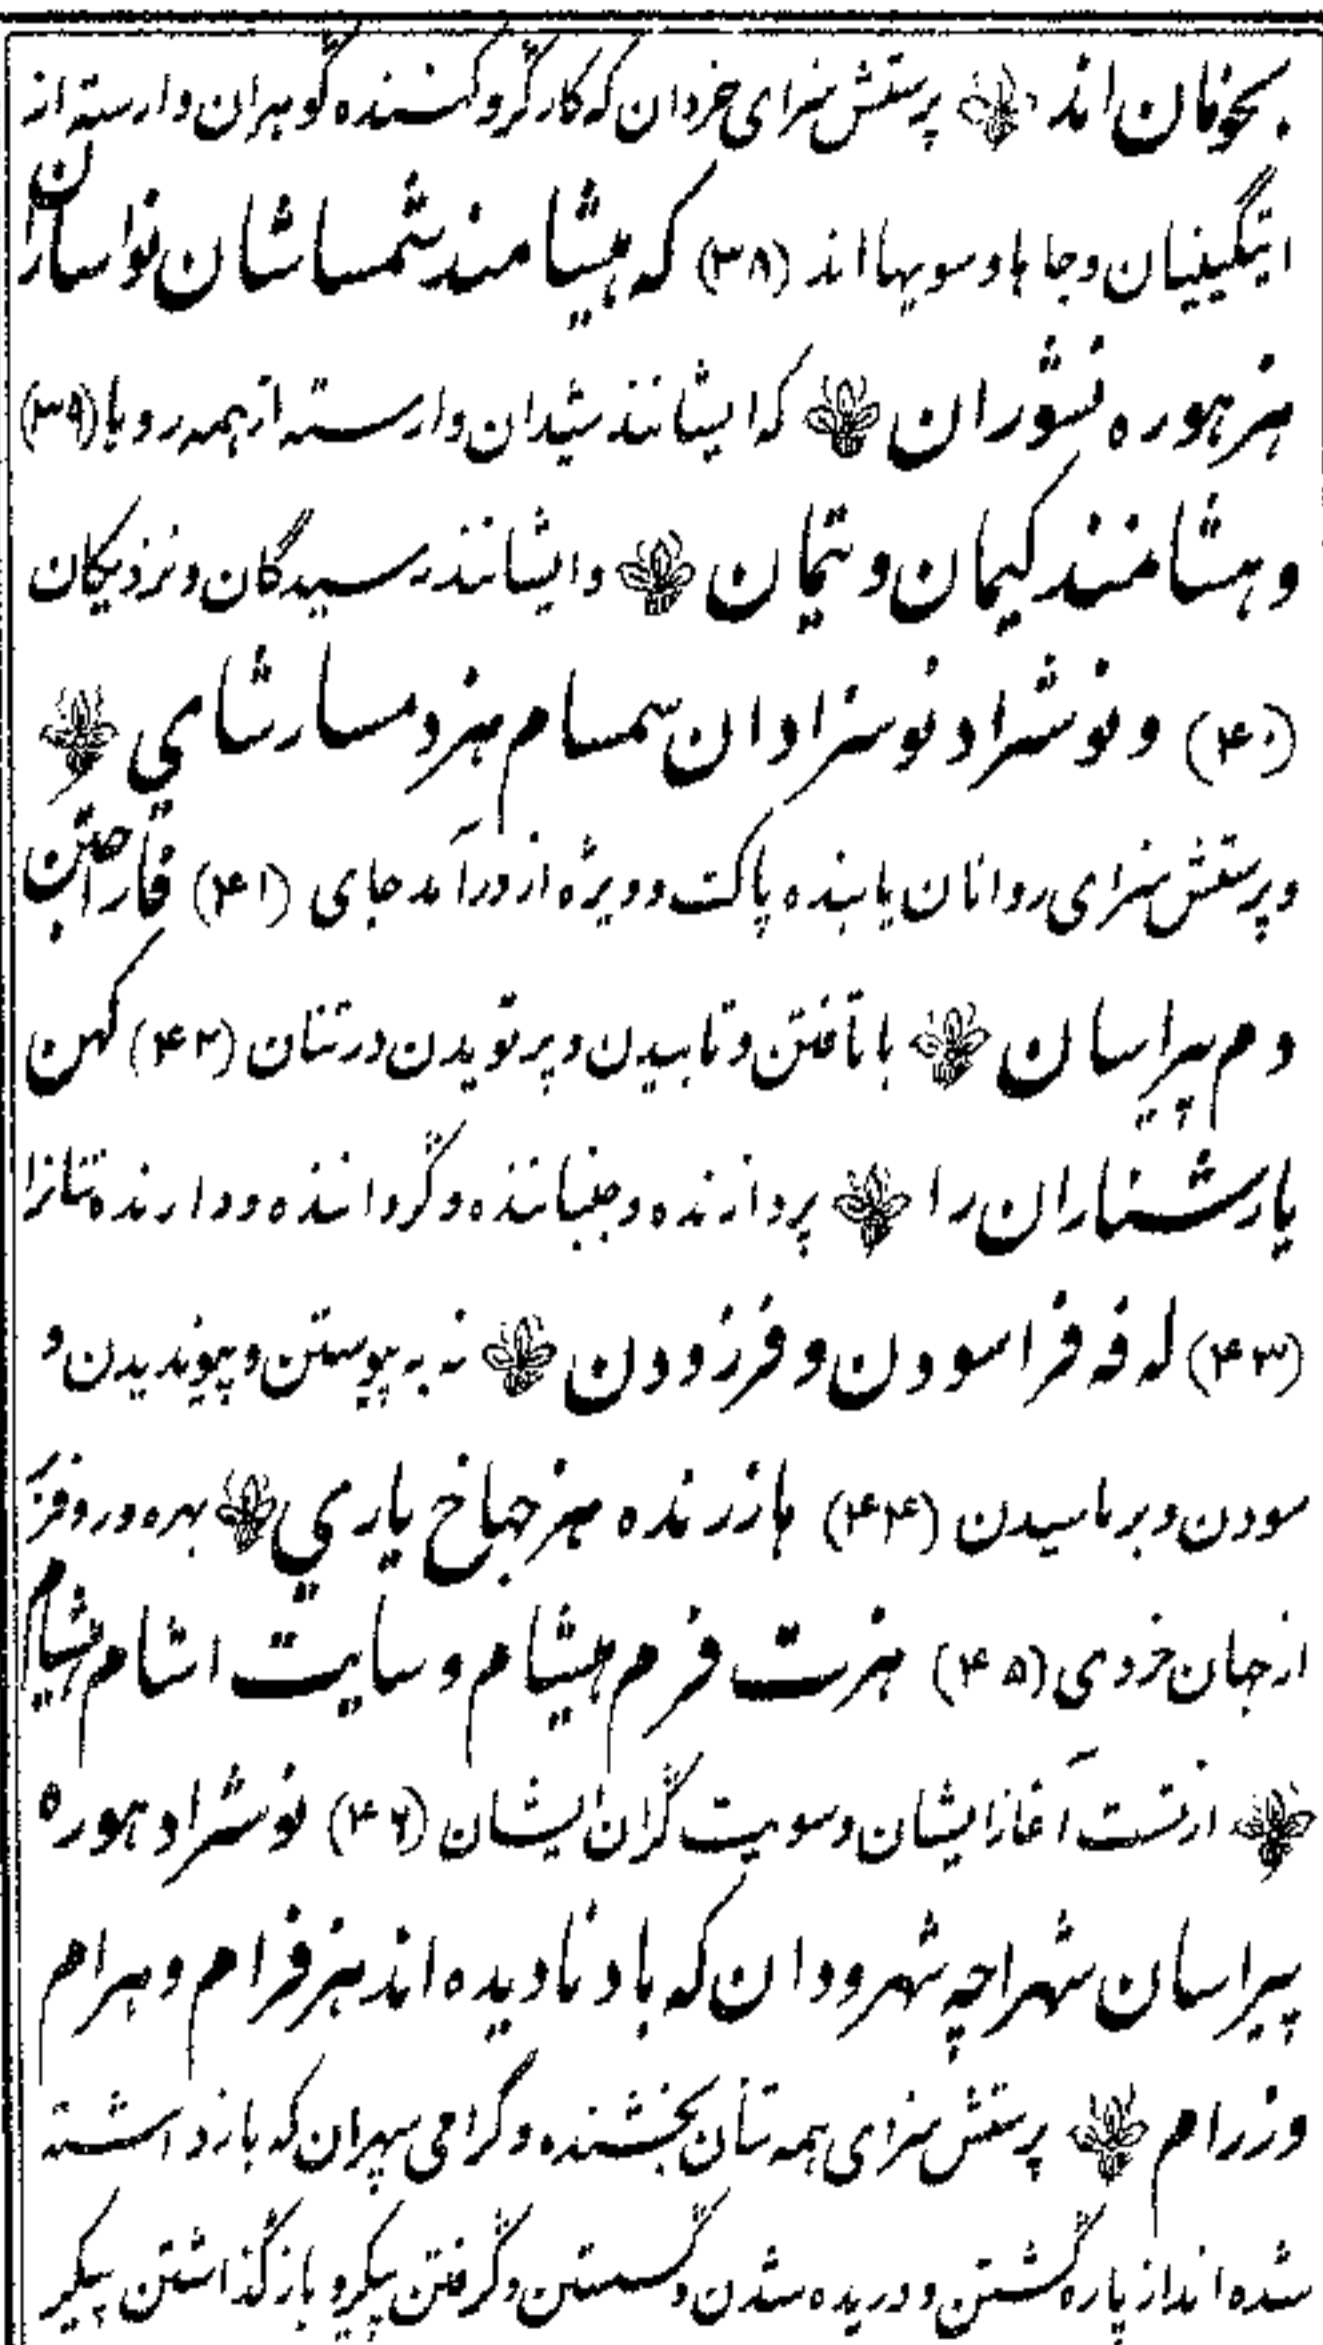 بخوفان اند پرستش سزای خردان که کارگر و کننده گوهران وارسته از
اینگینیان و جاها و سویها اند (۳۸) که هیشامند شمساشان نواساران
هنر هوره نشوران که ایشانند شیدان وارسته از همه رویا (۳۹)
و هشامنند کیمان و تیمان و ایشانند رسیدگان و نزدیکان
(۴۰) و نوشراد نوسزادان سمسام هزدمسار سای
و پرستش سزای روانان یابنده پاک و ویژه از درآمد جای (۴۱) فارامتن
دم پیراسان با تافتن و تابیدن و پرتویدن در تنان (۴۲) کهن
یارشتاران را پردازنده و جنباننده و گرداننده و دارنده تنانرا
(۴۳) له فه فراسودن و فرزودن نه به پیوستن و پیوندیدن و
سودن و برماسیدن (۴۴) هازرنده هنر جهاخ یاری بهره ور و فرّ
از جهان خردی (۴۵) هنرت فرم هیشام و سایت اشام هیشام
از تست آغاز ایشان و سویت گران ایشان (۴۶) نوشراد هوره
پیراسان شهراچه شهرودان که باد نادیده اند هنر فرام و هرام
وزرام پرستش سزای همه تنان بخشنده و گرامی سپهران که بازداشته
شده اند از پاره گشتن و دریده شدن و گسستن و گرفتن پیکر و بازگذاشتن پیکر